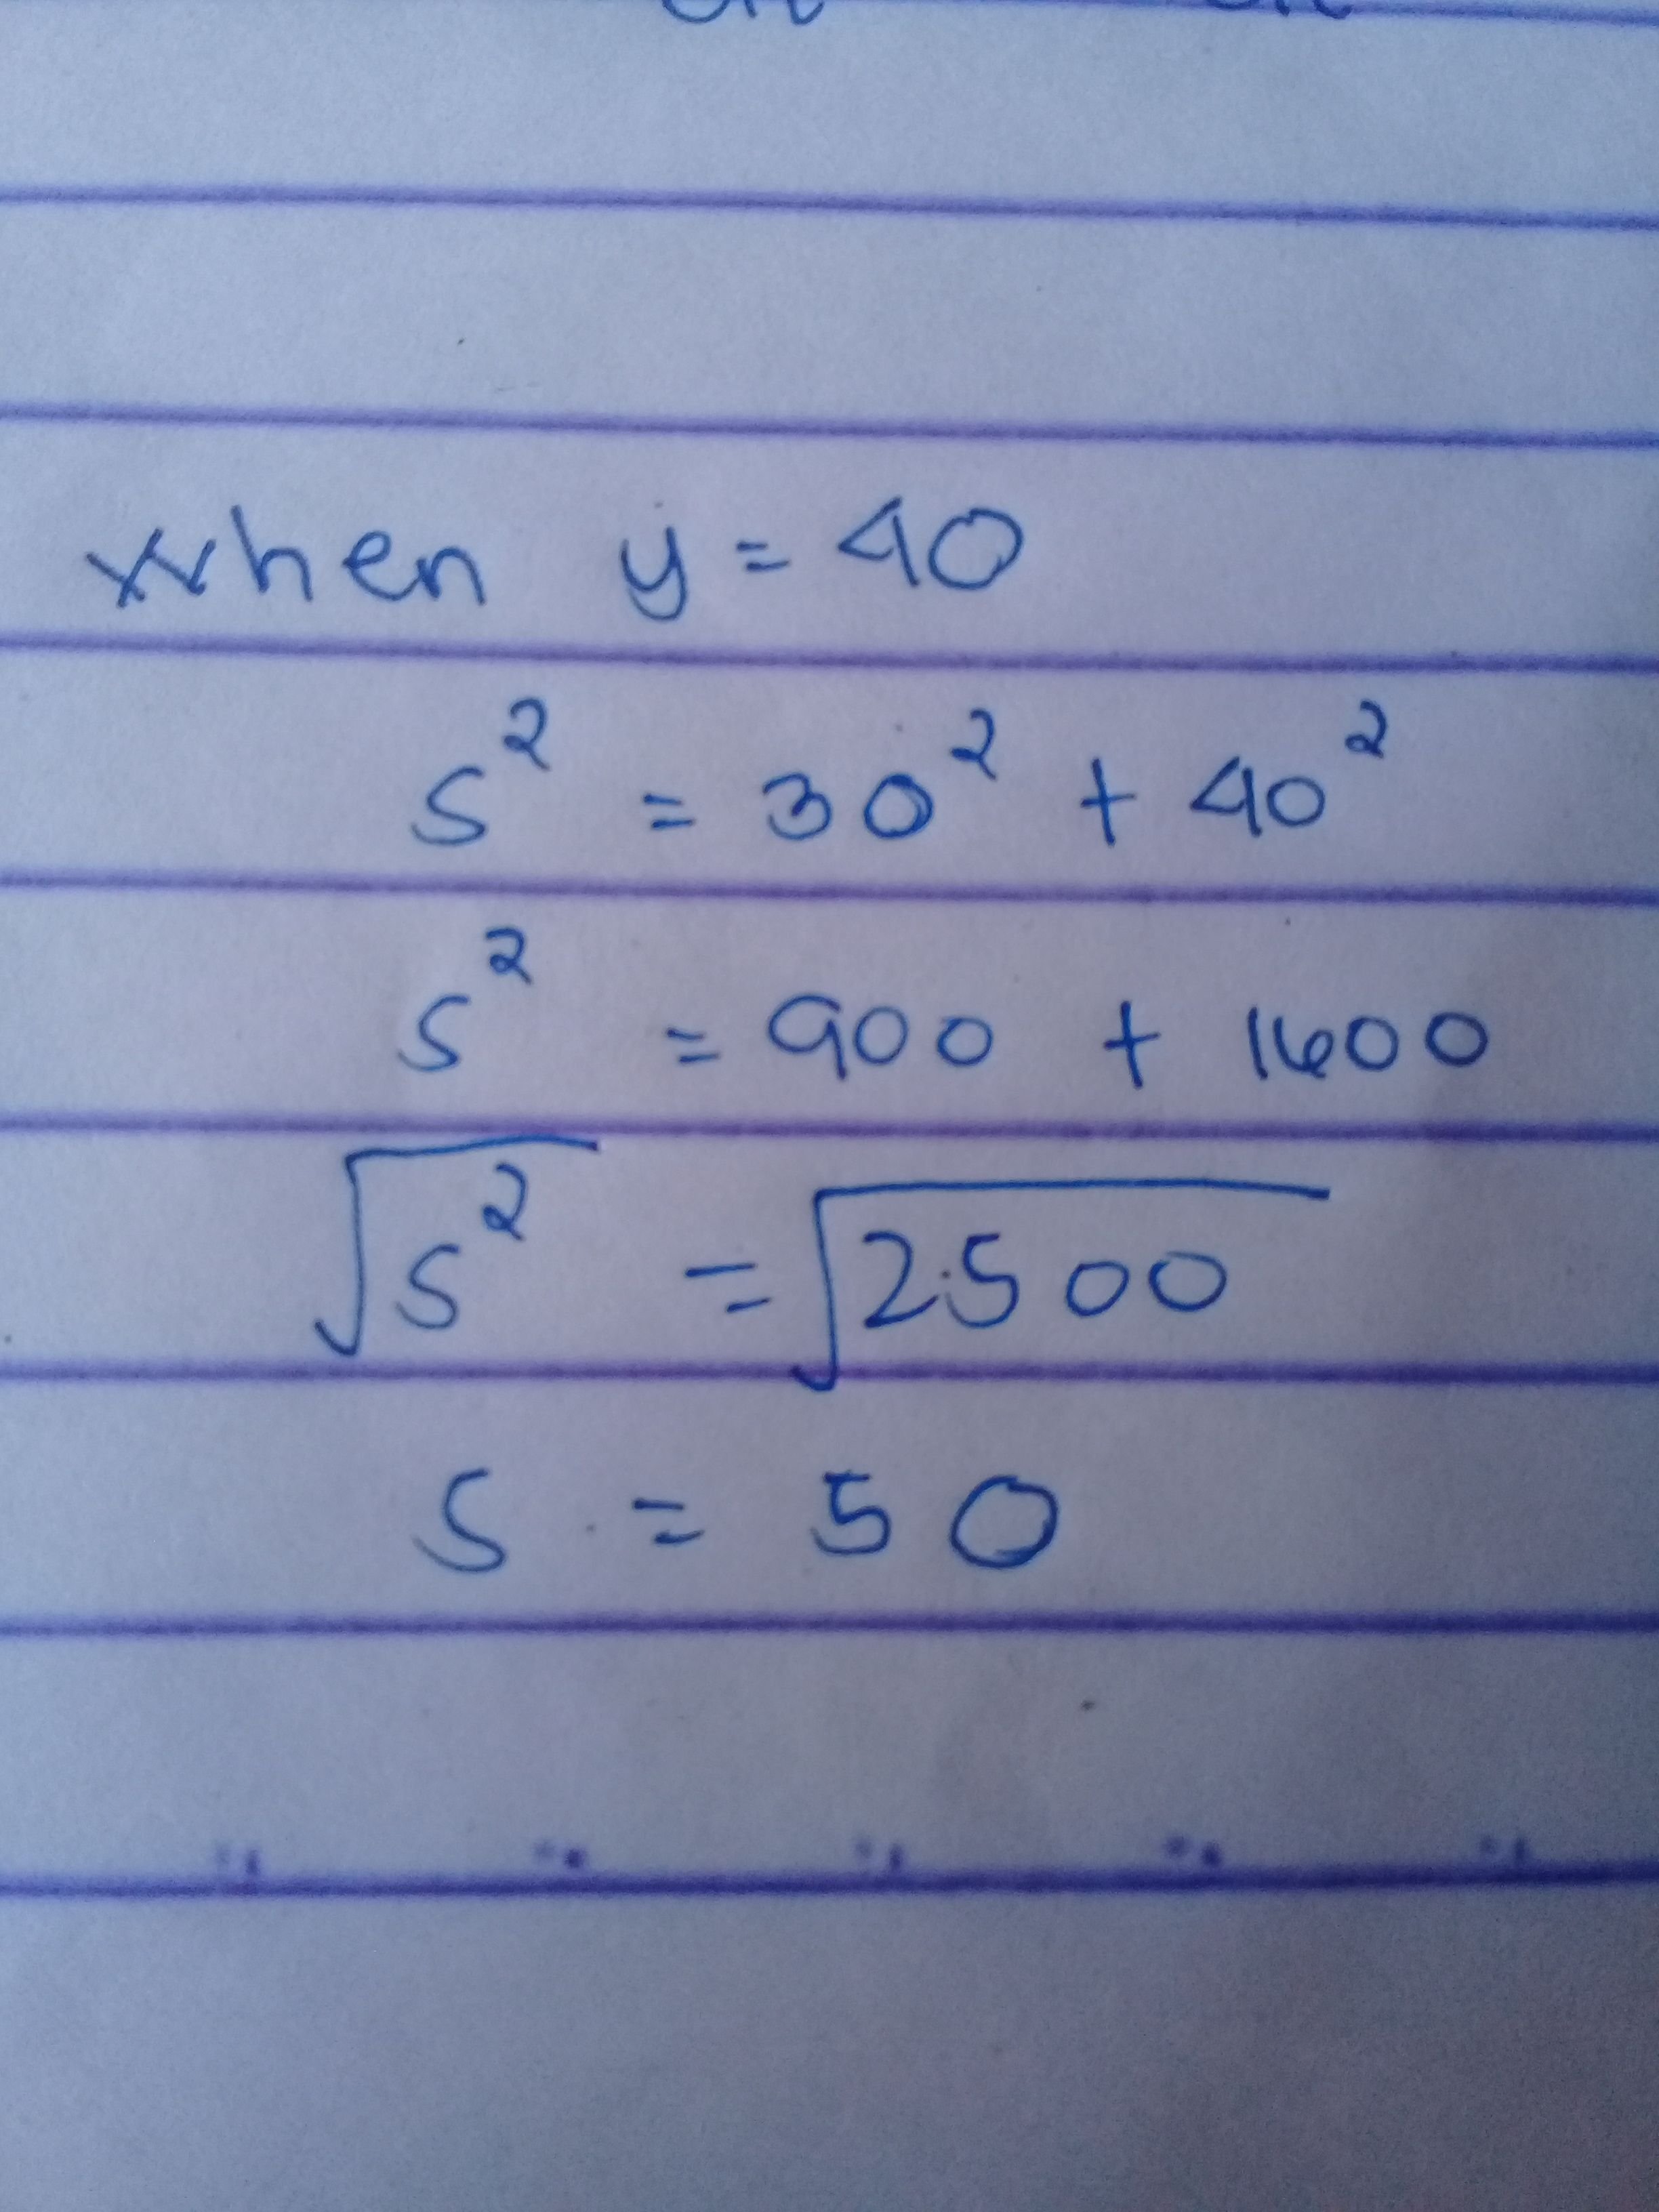 when y = 40
s² = 30² + 40²
s² = 900 + 1600
√s² = √2500
s = 50